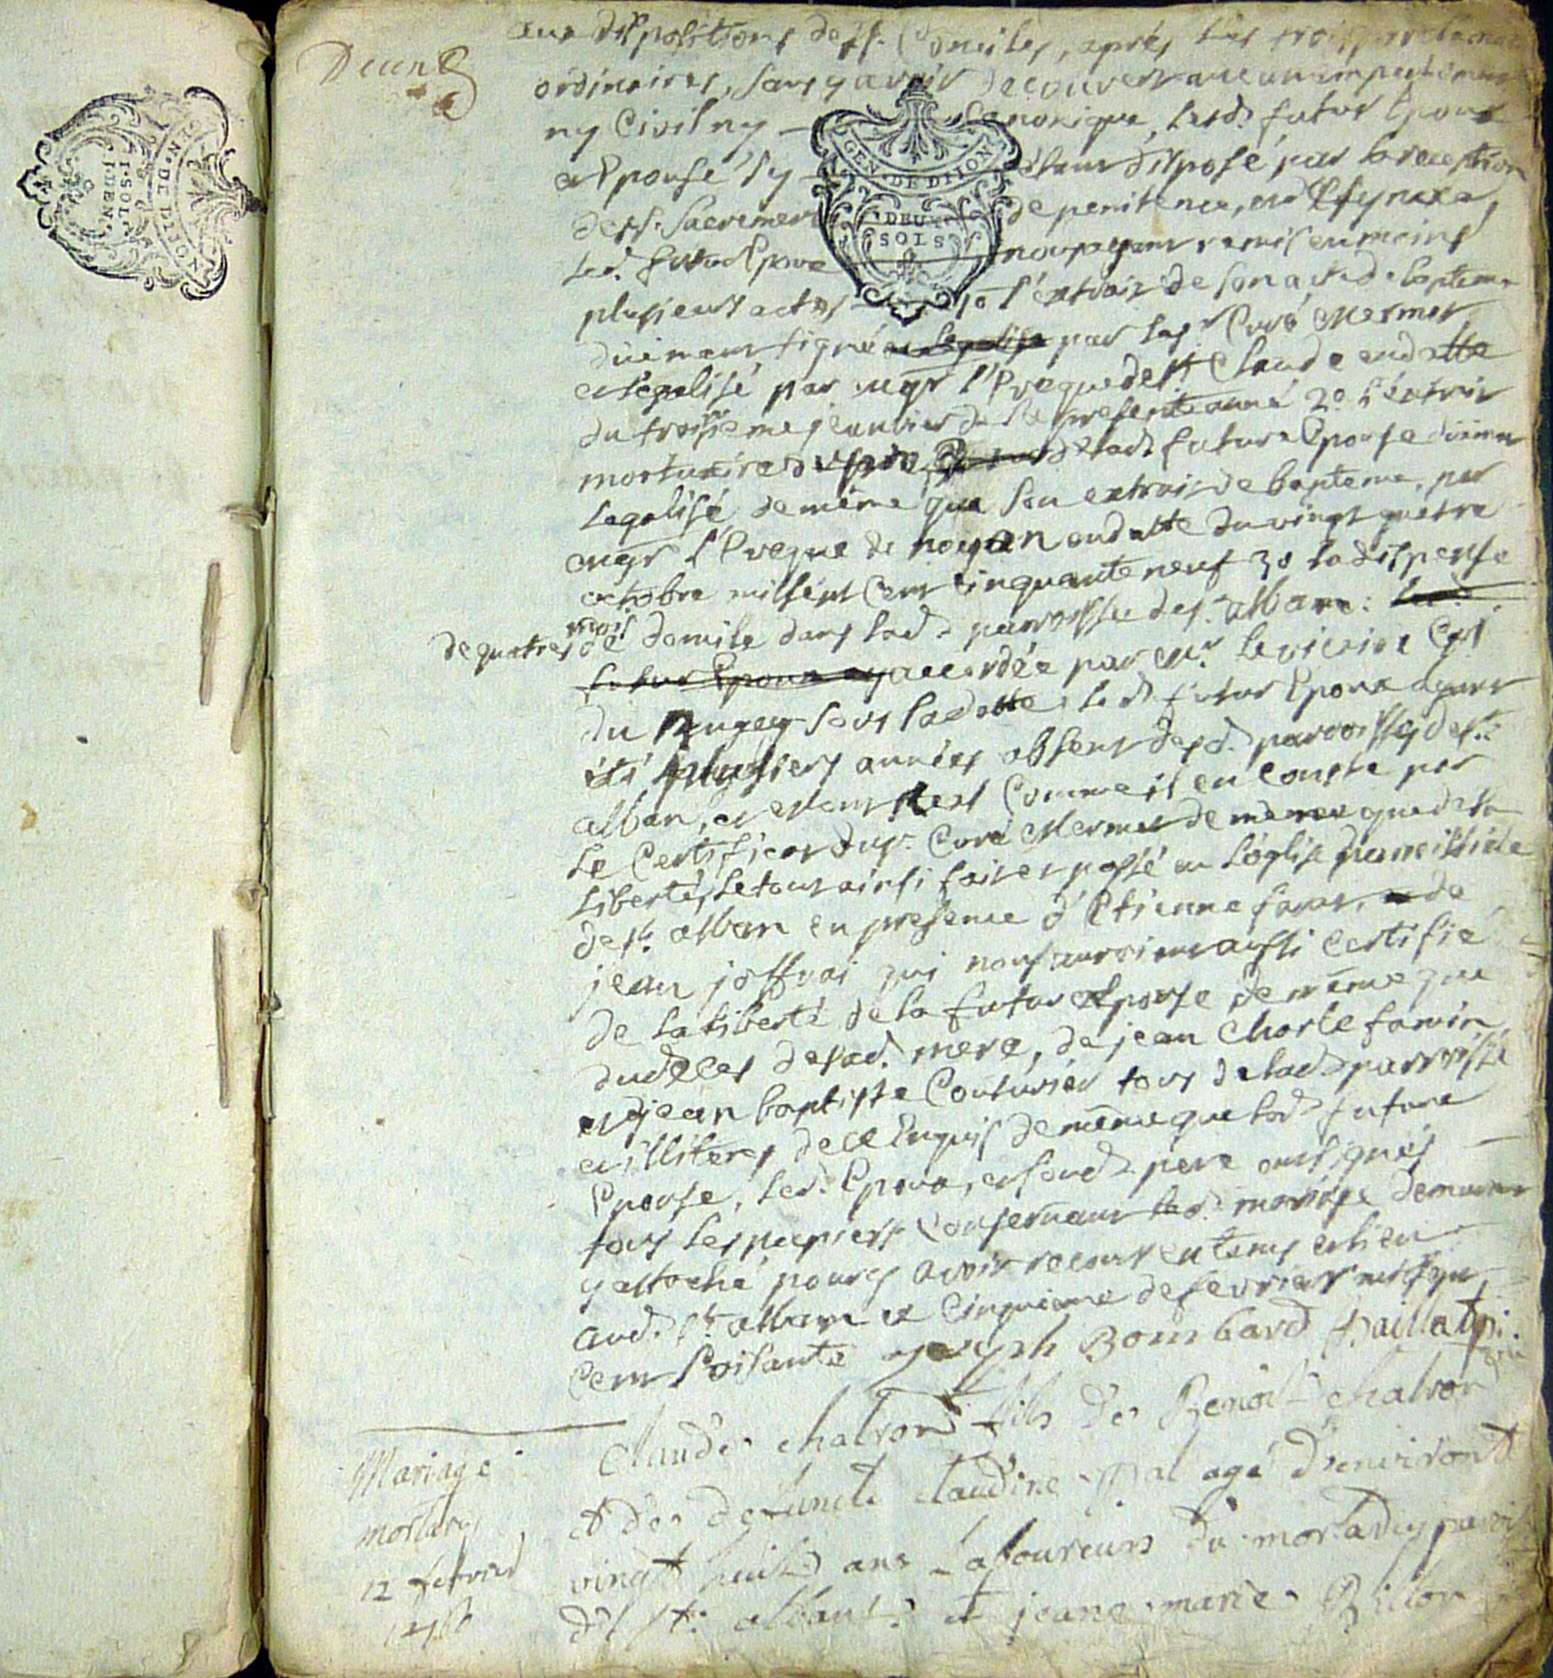 GEN. DE DIJON
1. SOL.
GEN. DE DIJON
DEUX
SOLS
aux dispositions des sts. Conciles, après les trois
ordinaires, sans y avoir decouvert aucun empechement
ny Civil ny canonique, lesd. futur Epoux
et Epouse s'y etant disposé par la reception
des sts. Sacrements de penitence, et d'Esynaxe,
Led. futur Epoux nous ayant remis en mains
plusieurs actes 1o l'extrait de son acte de bapteme
duement signé par le sr Curé Mermet
et légalisé par mgr l'Eveque de st. Claude en datte
du troisième janvier de la presente année 2o l'extrait
mortuaire du père de lad. future Epouse duement
Legalisé de même que son extrait de bapteme, par
mgr l'Eveque de noyon en datte du vingt quatre
octobre mil sept Cent cinquante neuf 3o la dispense
de quatres mois de domicile dans lad. parroisse de st. alban:
accordée par mr. le vicaire
du Bugey sous la datte led. futur Epoux ayant
été plusieurs années absent desd. parroisses de st.
alban, Comme il en Conste par
Le Certificat du sr. Curé Mermet de même que de sa
Liberté, Le tout ainsi fait et passé en l'église parroissiale
de st. alban en presence d'Etienne de
jean joffrai qui nous auroient aussi Certifié
de la Liberté de la future Epouse de même que
du déces de sad. mere, de jean Charle famin
et jean baptiste Couturier tous de lad. parroisse
et illiteres de ce Enquis de même que lad. future
Epouse, Led. Epoux, et sond. pere ont signés
tous les papiers Consernant led. mariage demeurent
y attaché pour y avoir recour en tems et lieu
aud. st. alban ce Cinquieme de fevrier mil sept
Cent soisante joseph Bombard Paillat
Mariage
mortarey
12 fevrier
1760
Claude chatron fils de Benoit chatron
et de defuncte claudine agé d'environt
vingt huit ans Laboureur du mortarey parois
de st. alban et jeane marie Billon